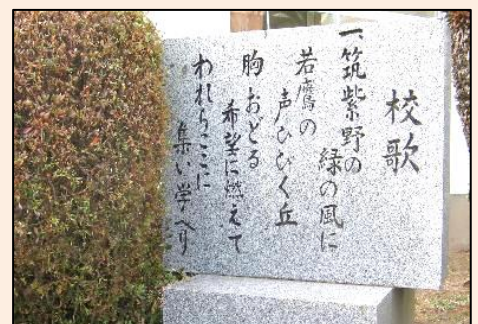 校歌
一、筑紫野の
緑の風に
若鷹の
声ひびく丘
胸おどる
希望に燃えて
われらここに
集い学べり